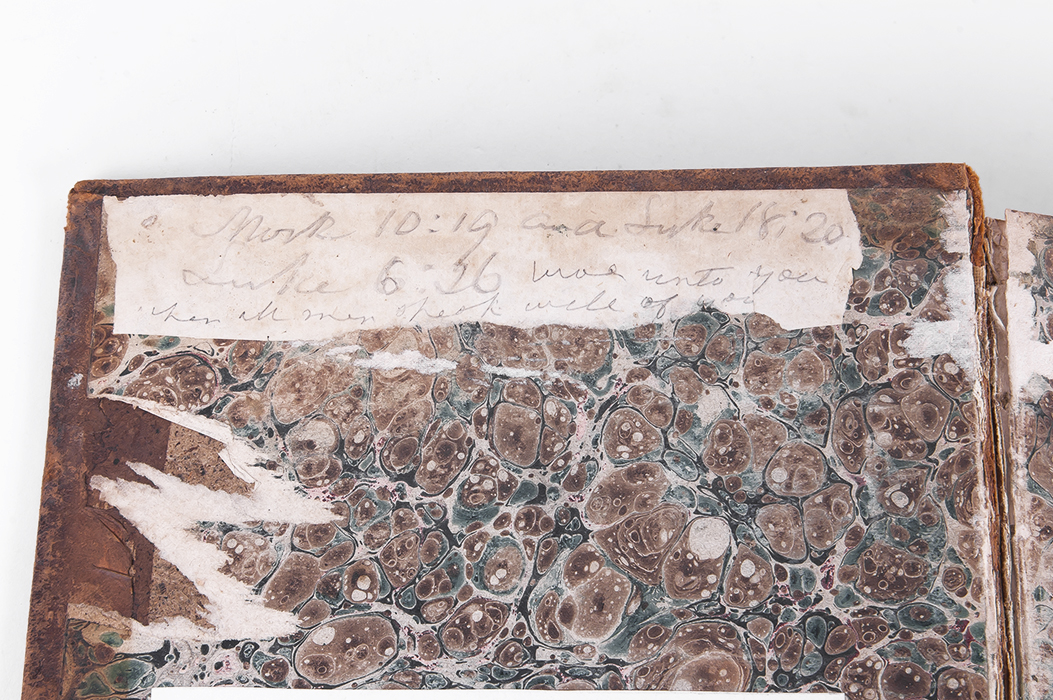 Mark 10:19 and Luke 18:20
Luke 6:26 woe unto you
when all men speak well of you